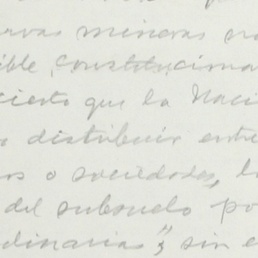 rvas mineras na
ible, constituciona
cierto que la Naci
distribuir entre
os o sociedades, l
del subsuelo po
dinarias"; sin e